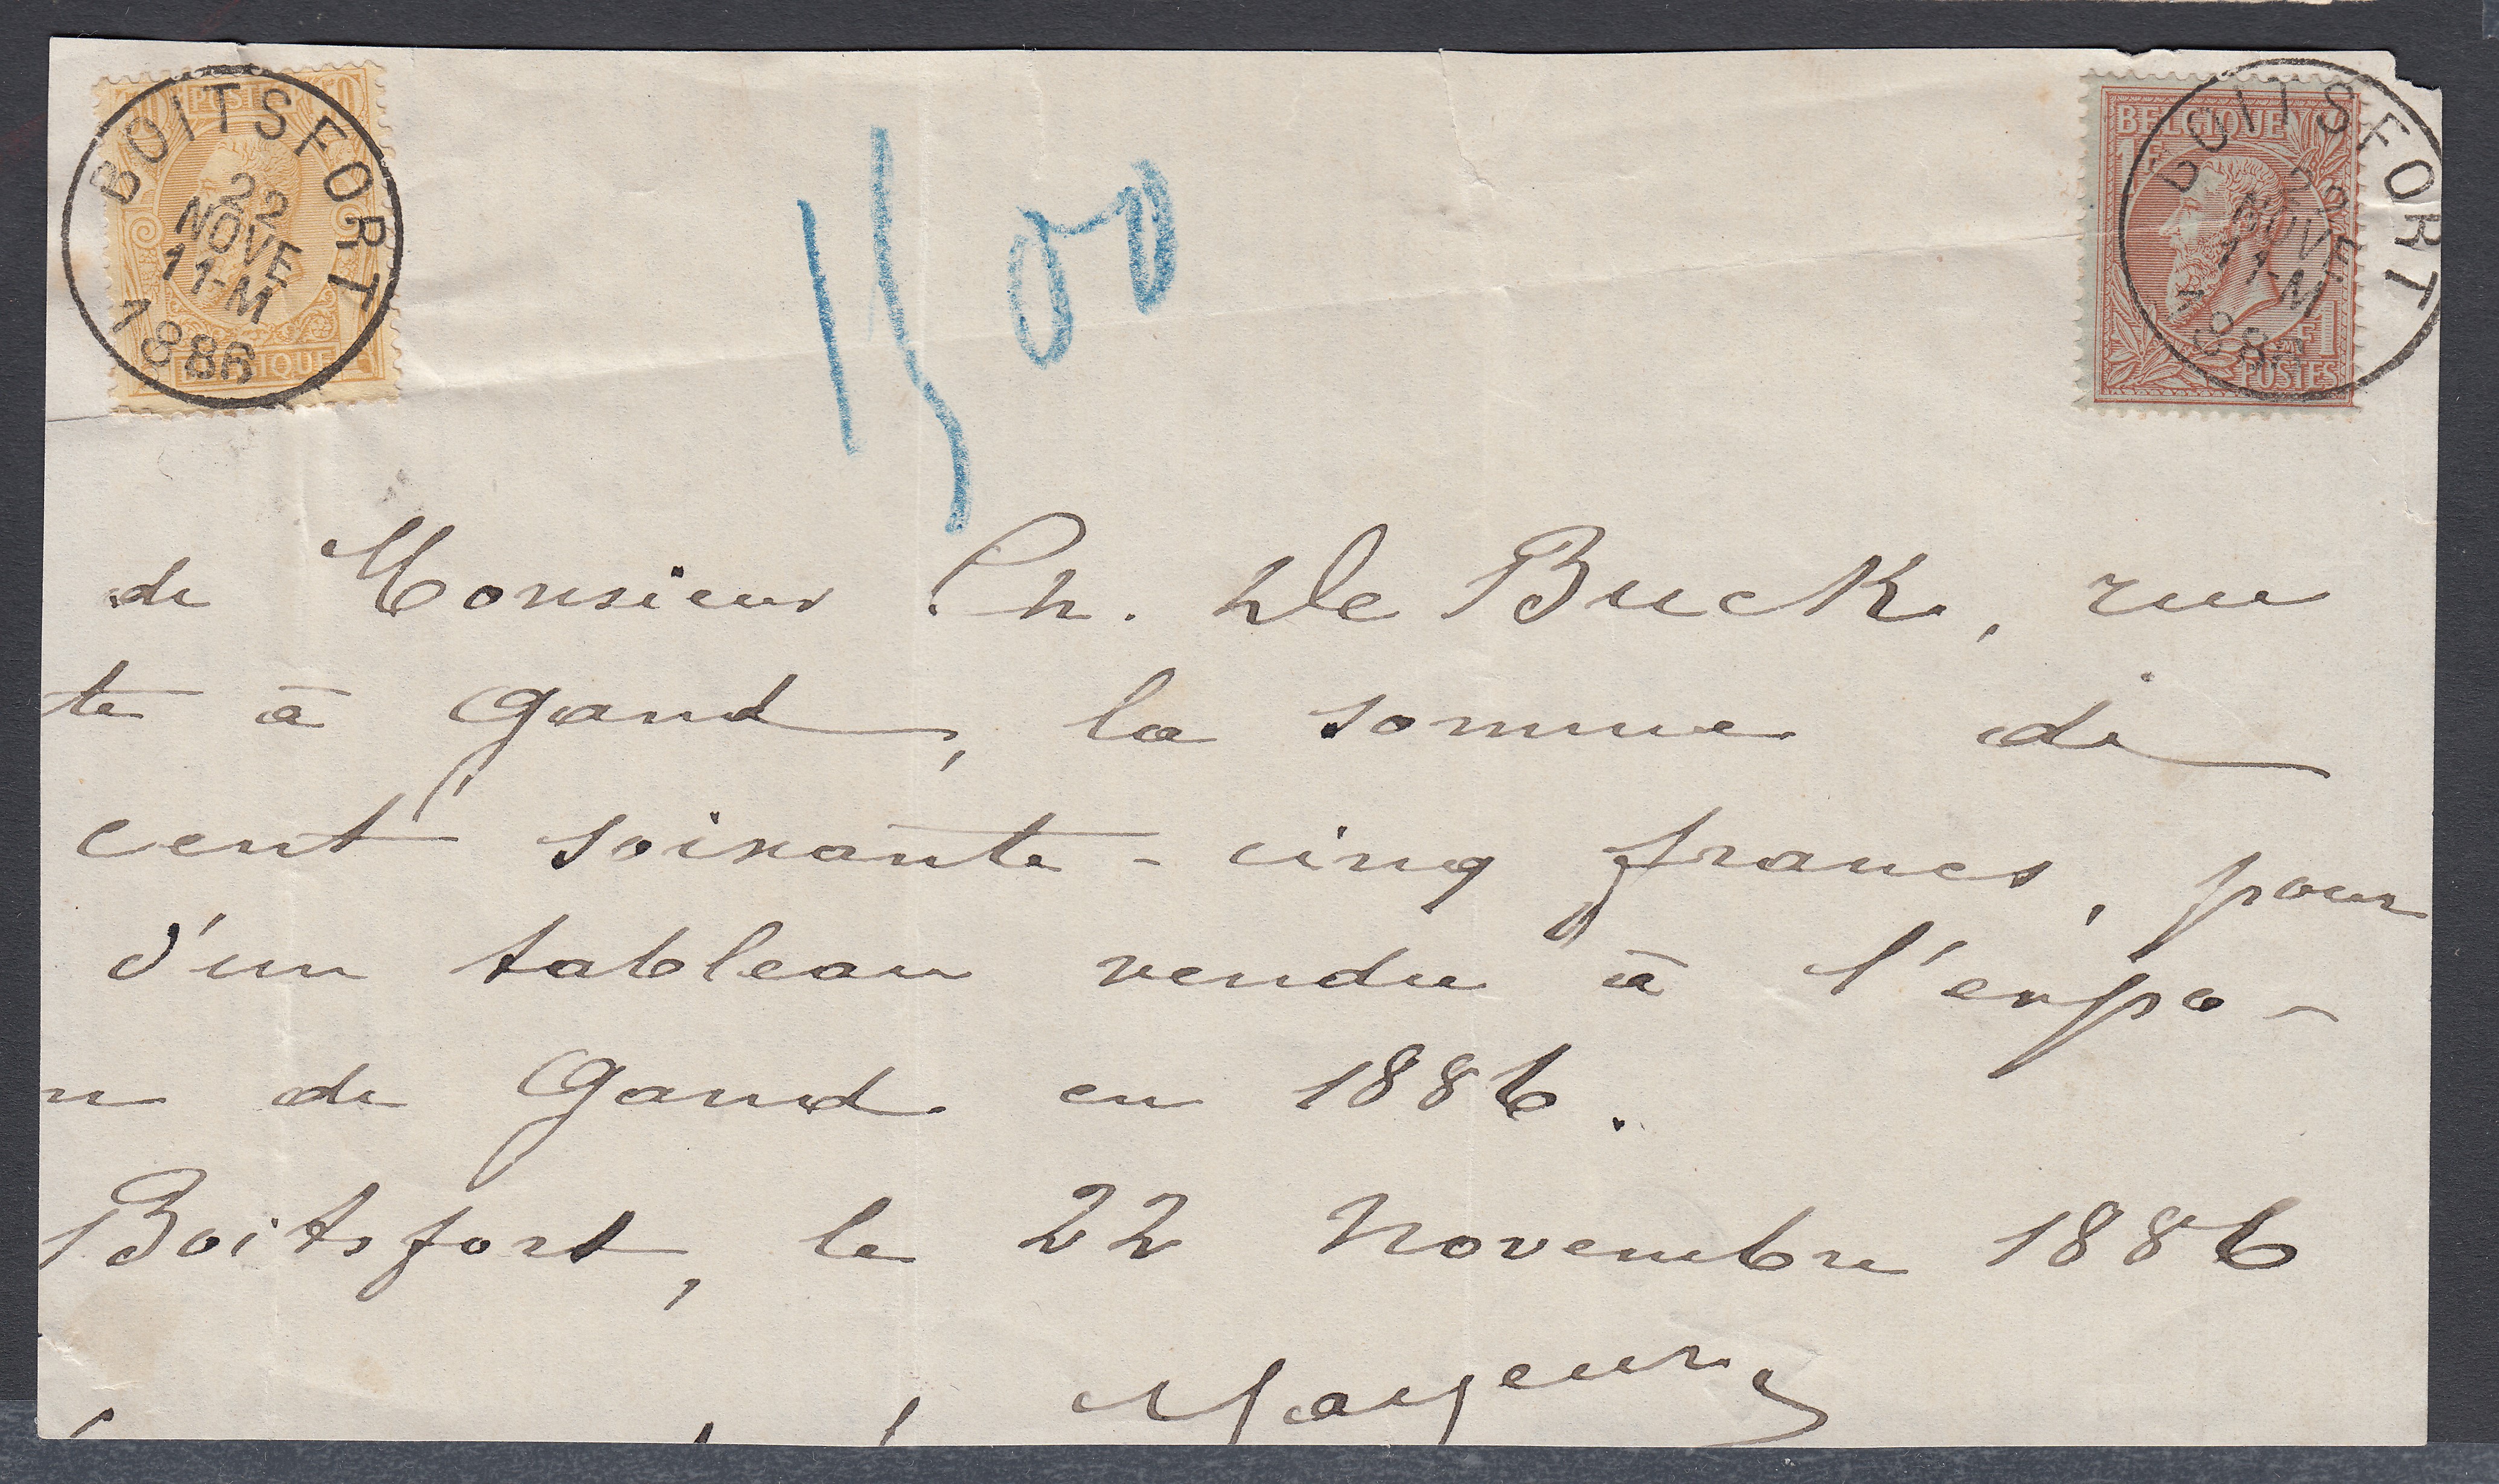 50 POSTES 50
BELGIQUE
BOITSFORT
22
NOVE
11-M
1886
BELGIQUE
1F
1
POSTES
BOITSFORT
22
NOVE
11-M
1886
1/50
de Monsieur Ch. De Buck, rue
te à Gand, la somme de
cent soixante-cinq francs, pour
d'un tableau vendu à l'expo-
n de Gand en 1886.
Boitsfort, le 22 Novembre 1886
Mayeur